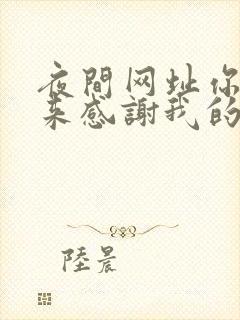 夜間网址你
来感謝我的
陸晨